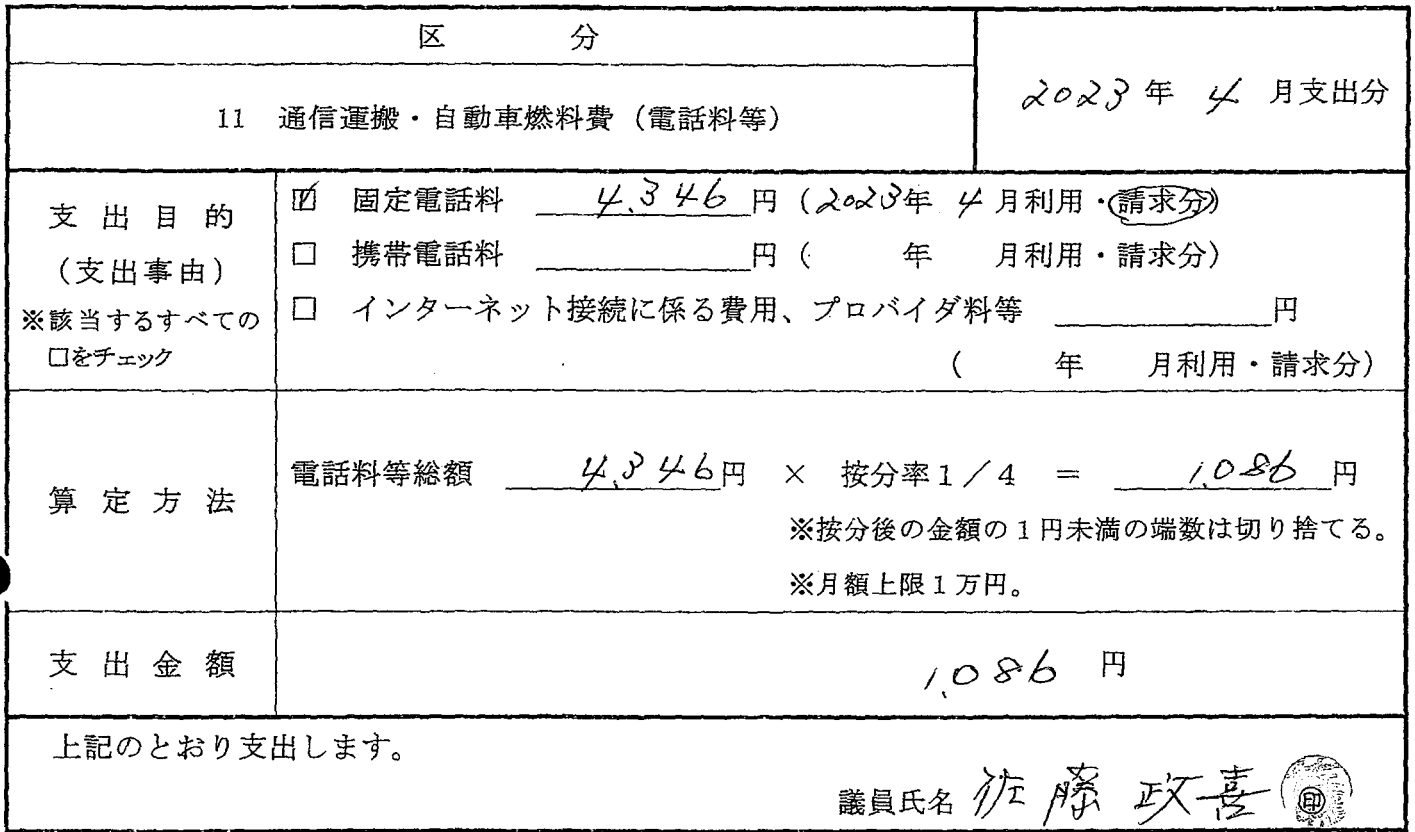 区 分
2023年 4月支出分
11 通信運搬・自動車燃料費（電話料等）
支出目的
（支出事由）
※該当するすべての
□をチェック
☑ 固定電話料 4,346円（2023年 4月利用・請求分）
□ 携帯電話料 円（ 年 月利用・請求分）
□ インターネット接続に係る費用、プロバイダ料等 円
（ 年 月利用・請求分）
算定方法
電話料等総額 4,346円 × 按分率1／4 ＝ 1,086円
※按分後の金額の1円未満の端数は切り捨てる。
※月額上限1万円。
支出金額
1,086 円
上記のとおり支出します。
議員氏名 佐藤 政喜 ㊞